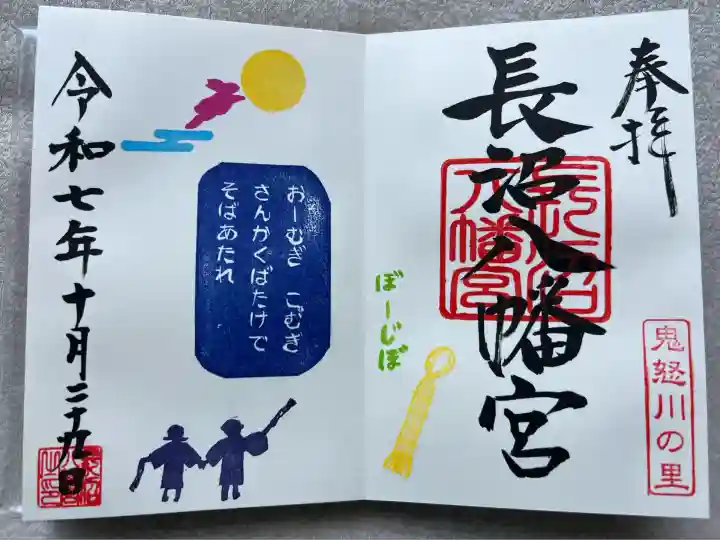 奉拝
長沼八幡宮
長沼八幡宮
鬼怒川の里
ぼーじぼ
おーむぎ こむぎ
さんかくばたけで
そばあたれ
令和七年十月二十九日